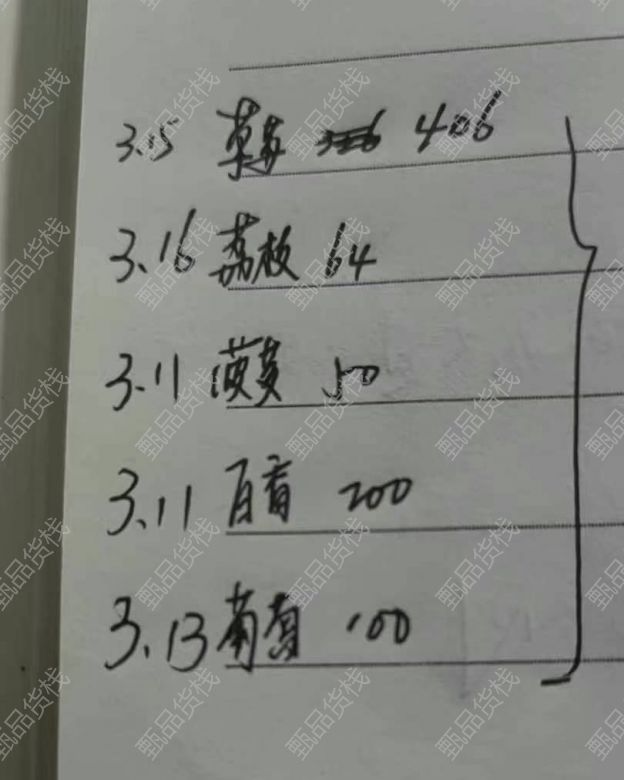 3.15 草莓 406
3.16 荔枝 64
3.11 菠萝 50
3.11 百香 200
3.13 葡萄 100
甄品货栈